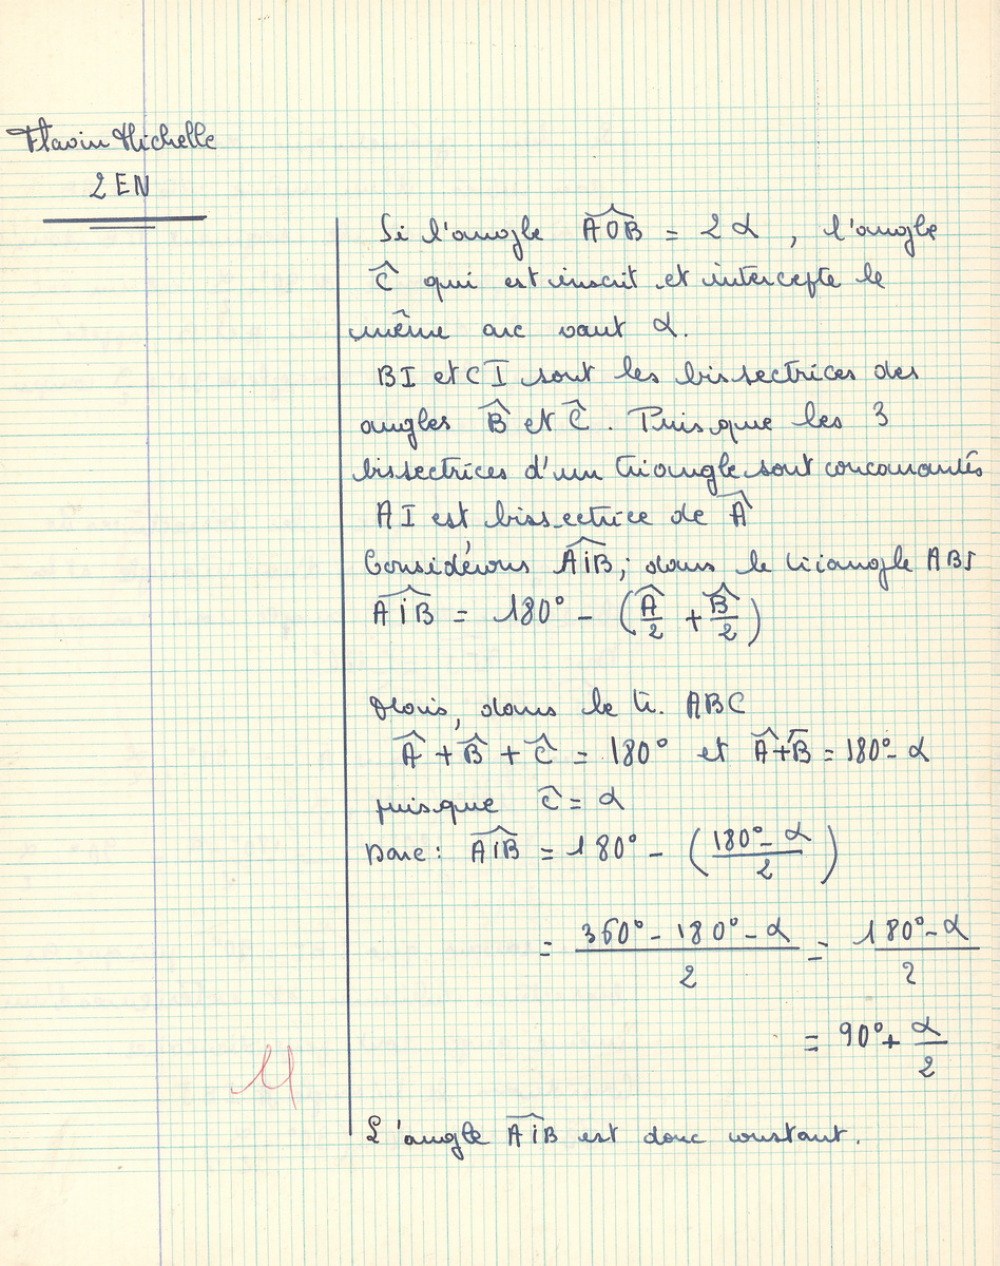 Flavin Michelle
2 EN
Si l'angle AOB = 2α, l'angle
Ĉ qui est inscrit et intercepte le
même arc vaut α.
BI et CI sont les bissectrices des
angles B̂ et Ĉ. Puisque les 3
bissectrices d'un triangle sont concourantes
AI est bissectrice de Â
Considérons AIB, dans le triangle ABI
AIB = 180° - (Â/2 + B̂/2)
Mais, dans le tri. ABC
Â + B̂ + Ĉ = 180° et Â+B̂ = 180° - α
puisque Ĉ = α
Donc : AIB = 180° - (180° - α / 2)
= 360° - 180° - α / 2 = 180° - α / 2
= 90° + α/2
11
L'angle AIB est donc constant.